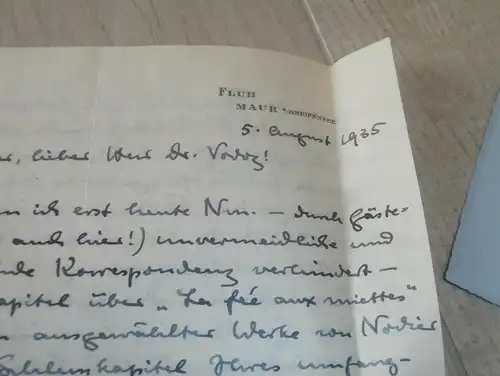 FLUH
MAUR a. GREIFENSEE
5. August 1935
lieber Herr Dr. Vodoz!
ich erst heute Nm. – durch Gäste-
auch hier!) unvermeidliche und
Korrespondenz verhindert –
apitel über „La fée aux miettes"
ausgewählter Werke von Nodier
Schlusskapitel Ihres umfang-